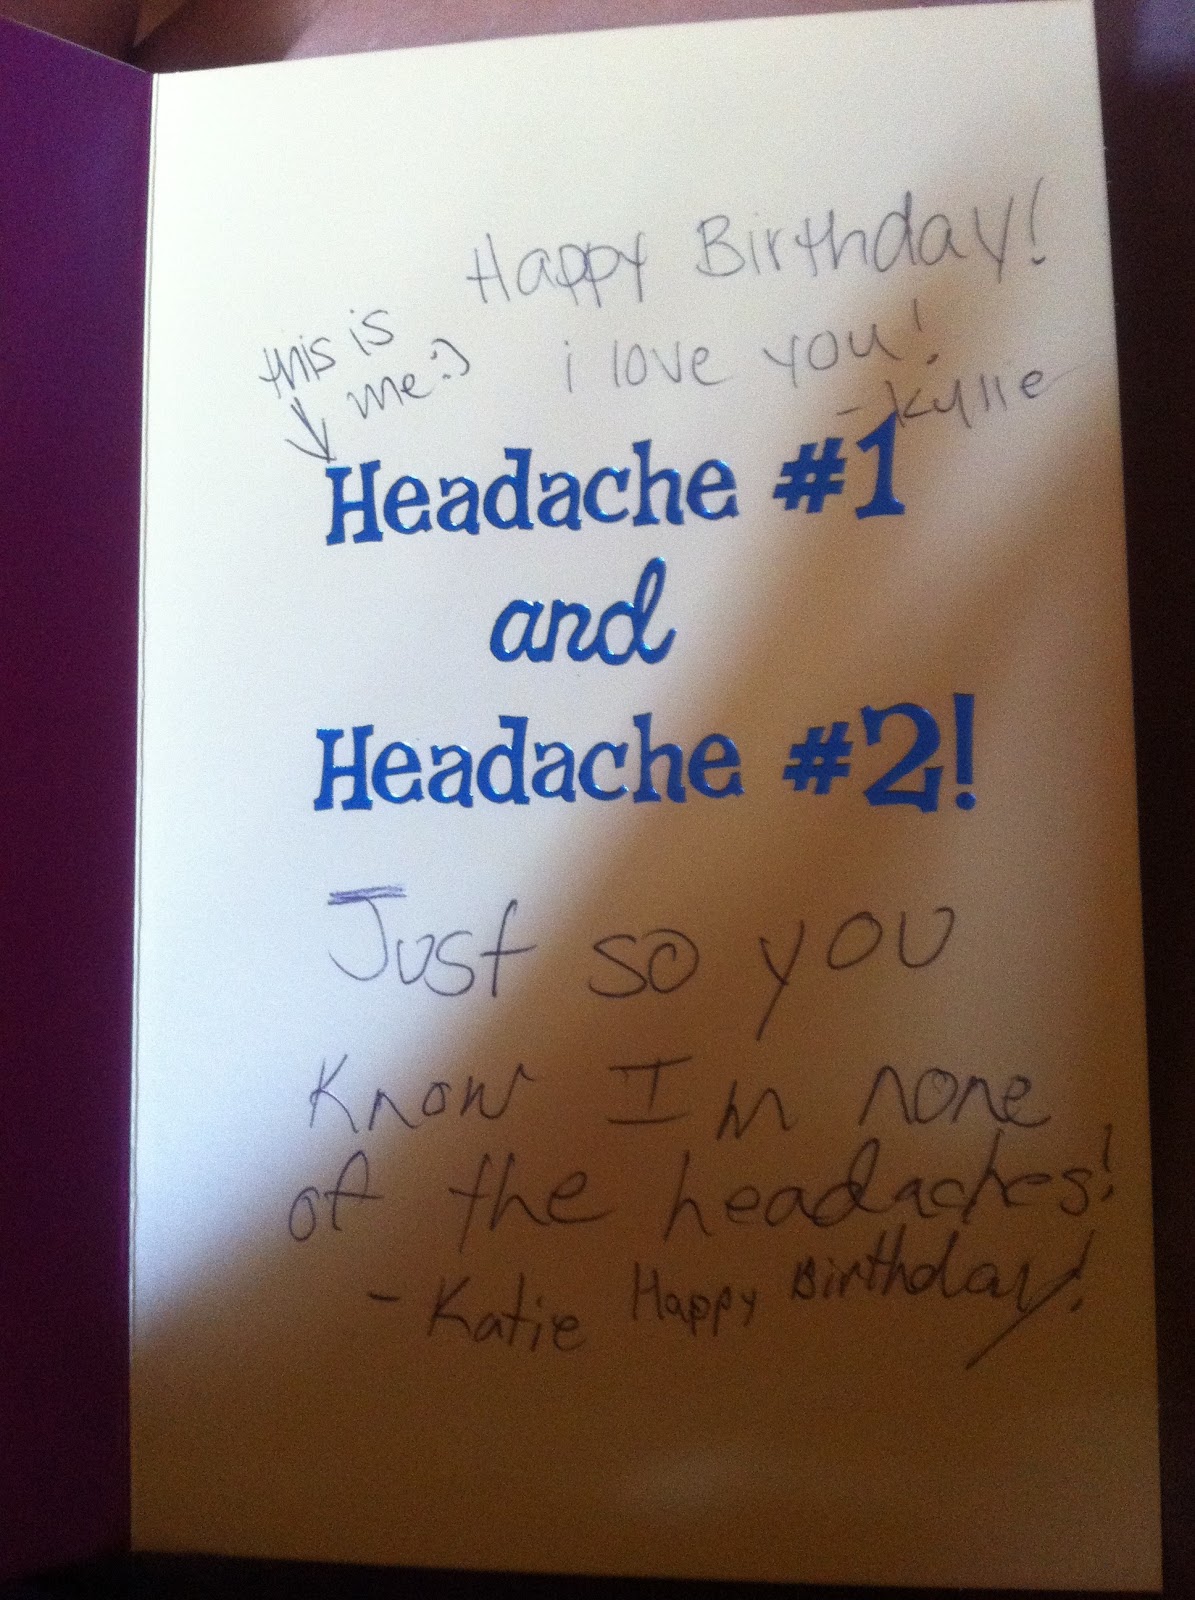 Happy Birthday!
this is
me :)
i love you!
- Kyllie
Headache #1
and
Headache #2!
Just so you
Know Im none
of the headaches!
- Katie Happy Birthday!